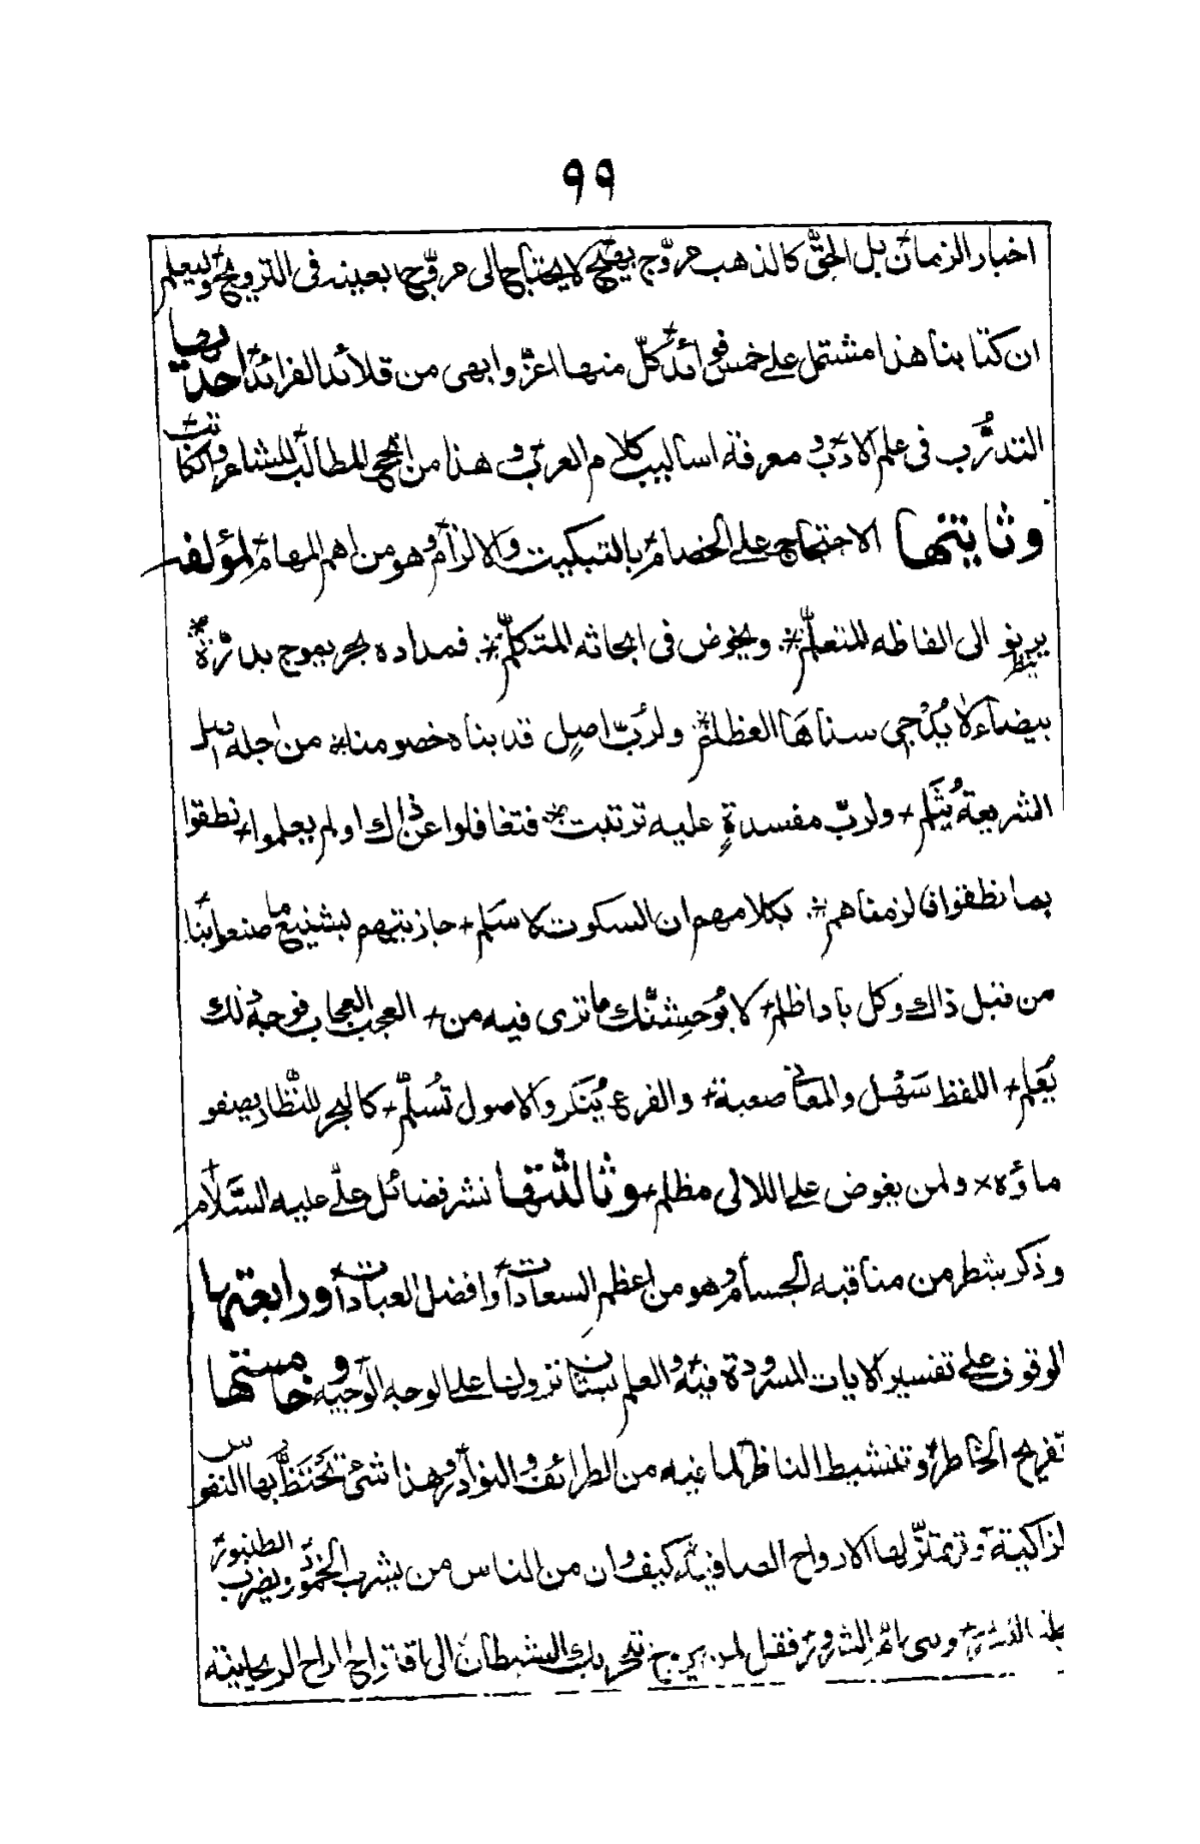 ٩٩
اخبار الزمان بل الحقّ كالذهب مروّج بقبح لا يحتاج الى مروّج بعينه فى الترويج وليعلم
ان كتابنا هذا مشتمل على خمس فوائد كلّ منها اعزّ وابهى من قلائد الفرائد احدٮها
التدرُّب فى علم الادب و معرفة اساليب كلام العرب و هذا من انجح المطالب للشاعر والكاتب
وثانيتها الاحتجاج على الخصام بالتبكيت والالزام وهو من اهم المهام لمؤلفه
يرنو الى الفاظه المتعلّم ويخوض فى ابحاثه المتكلّم فمداده بحر يموج بدرّة
بيضاء لا يُدْجى سناها العظلم ولرُبّ اصلٍ قد بناه خصومنا من اجله اصل
الشريعة يُثلم ولربّ مفسدةٍ عليه ترتبت فتغافلوا عن ذاك او لم يعلموا نطقوا
بما نطقوا فالزمناهم بكلامهم ان السكوت لاسلم جازيتهم بشنيع ما صنعوا بنا
من قبل ذاك وكل باد اظلم لا يُوحشنّك ما ترى فيه من العجب العجاب فوجه ذلك
يُعلم اللفظ سَهْل والمعانى صعبة والفرع يُنكر والاصول تُسلّم كالبحر للنّظار يصفو
ماؤه ولمن يغوض على اللالى مظلم وثالثتها نشر فضائل علىّ عليه السَّلام
وذكر شطر من مناقبه الجسام وهو من اعظم السعادات وافضل العبادات ورابعتها
الوقوف على تفسير الايات المسرودة فيه والعلم بشان نزولها على الوجه الوجيه وخامستها
تفريح الخاطر وتنشيط الناظر لما فيه من الطرائف والنوادر وهذا شئ تحتظّ بها النفوس
الزاكية وتهتزّ لها الارواح الصافية كيف وان من الناس من يشرب الخمور ويضرب الطنبور
فقل لمن يروج تحريك الشيطان الى باقة راح الراح الريحانية